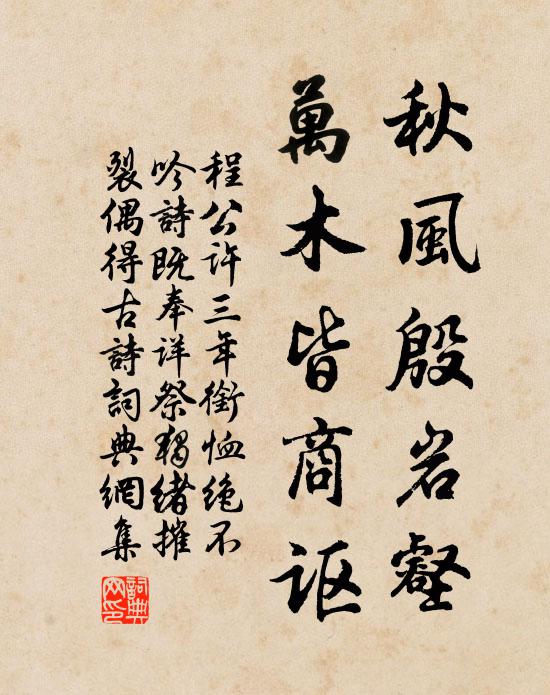 秋風殷岩壑
萬木皆商謳
程公許三年銜恤絶不
吟詩既奉祥祭猲緒摧
裂偶得古詩詞典網集
詞典网印